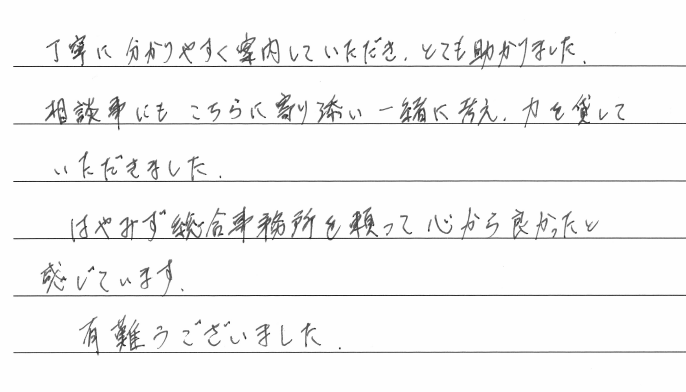 丁寧に分かりやすく案内していただき、とても助かりました。
相談事にもこちらに寄り添い一緒に考え、力を貸して
いただきました。
はやみず総合事務所を頼って心から良かったと
感じています。
有難うございました。